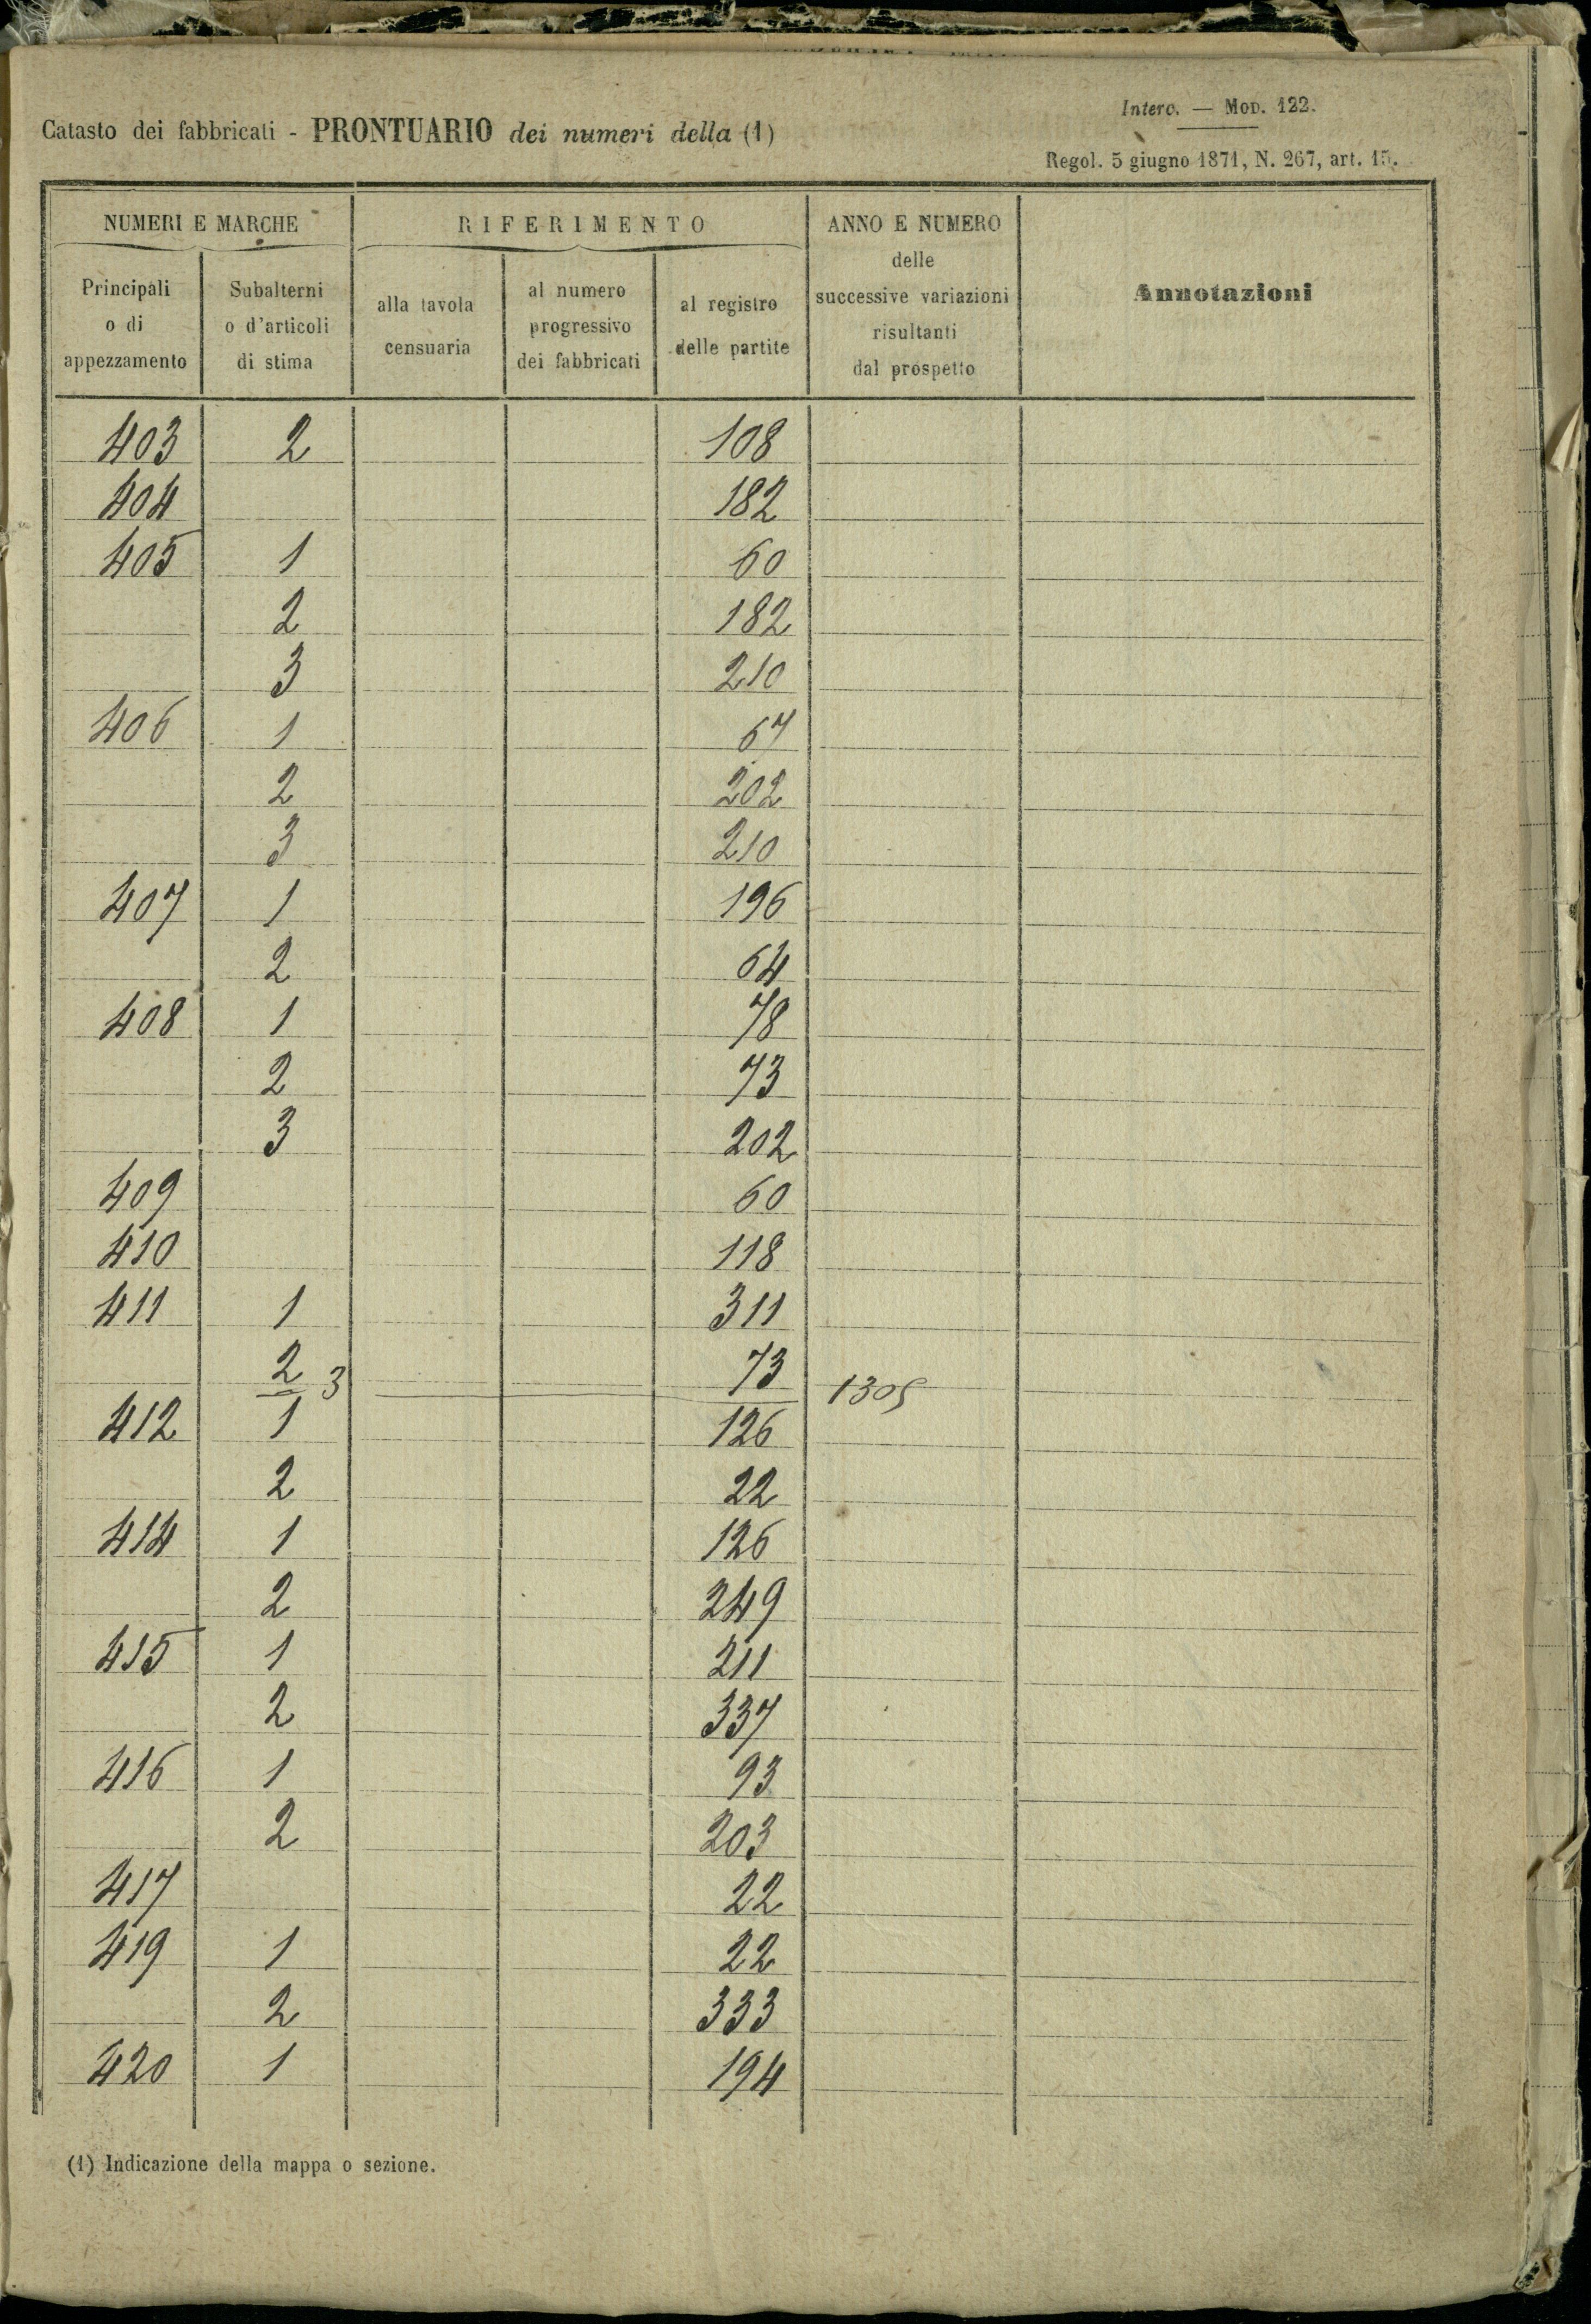 Interc. — Mod. 122.
Catasto dei fabbricati - PRONTUARIO dei numeri della (1)
Regol. 5 giugno 1871, N. 267, art. 15.
NUMERI E MARCHE RIFERIMENTO ANNO E NUMERO delle successive variazioni risultanti dal prospetto Annotazioni
Principali o di appezzamento Subalterni o d'articoli di stima alla tavola censuaria al numero progressivo dei fabbricati al registro delle partite
403 2 108
404 182
405 1 60
2 182
3 210
406 1 67
2 202
3 210
407 1 196
2 64
408 1 78
2 73
3 202
409 60
410 118
411 1 311
2 73
3 1305
412 1 126
2 22
414 1 126
2 249
415 1 211
2 337
416 1 93
2 203
417 22
419 1 22
2 333
420 1 194
(1) Indicazione della mappa o sezione.